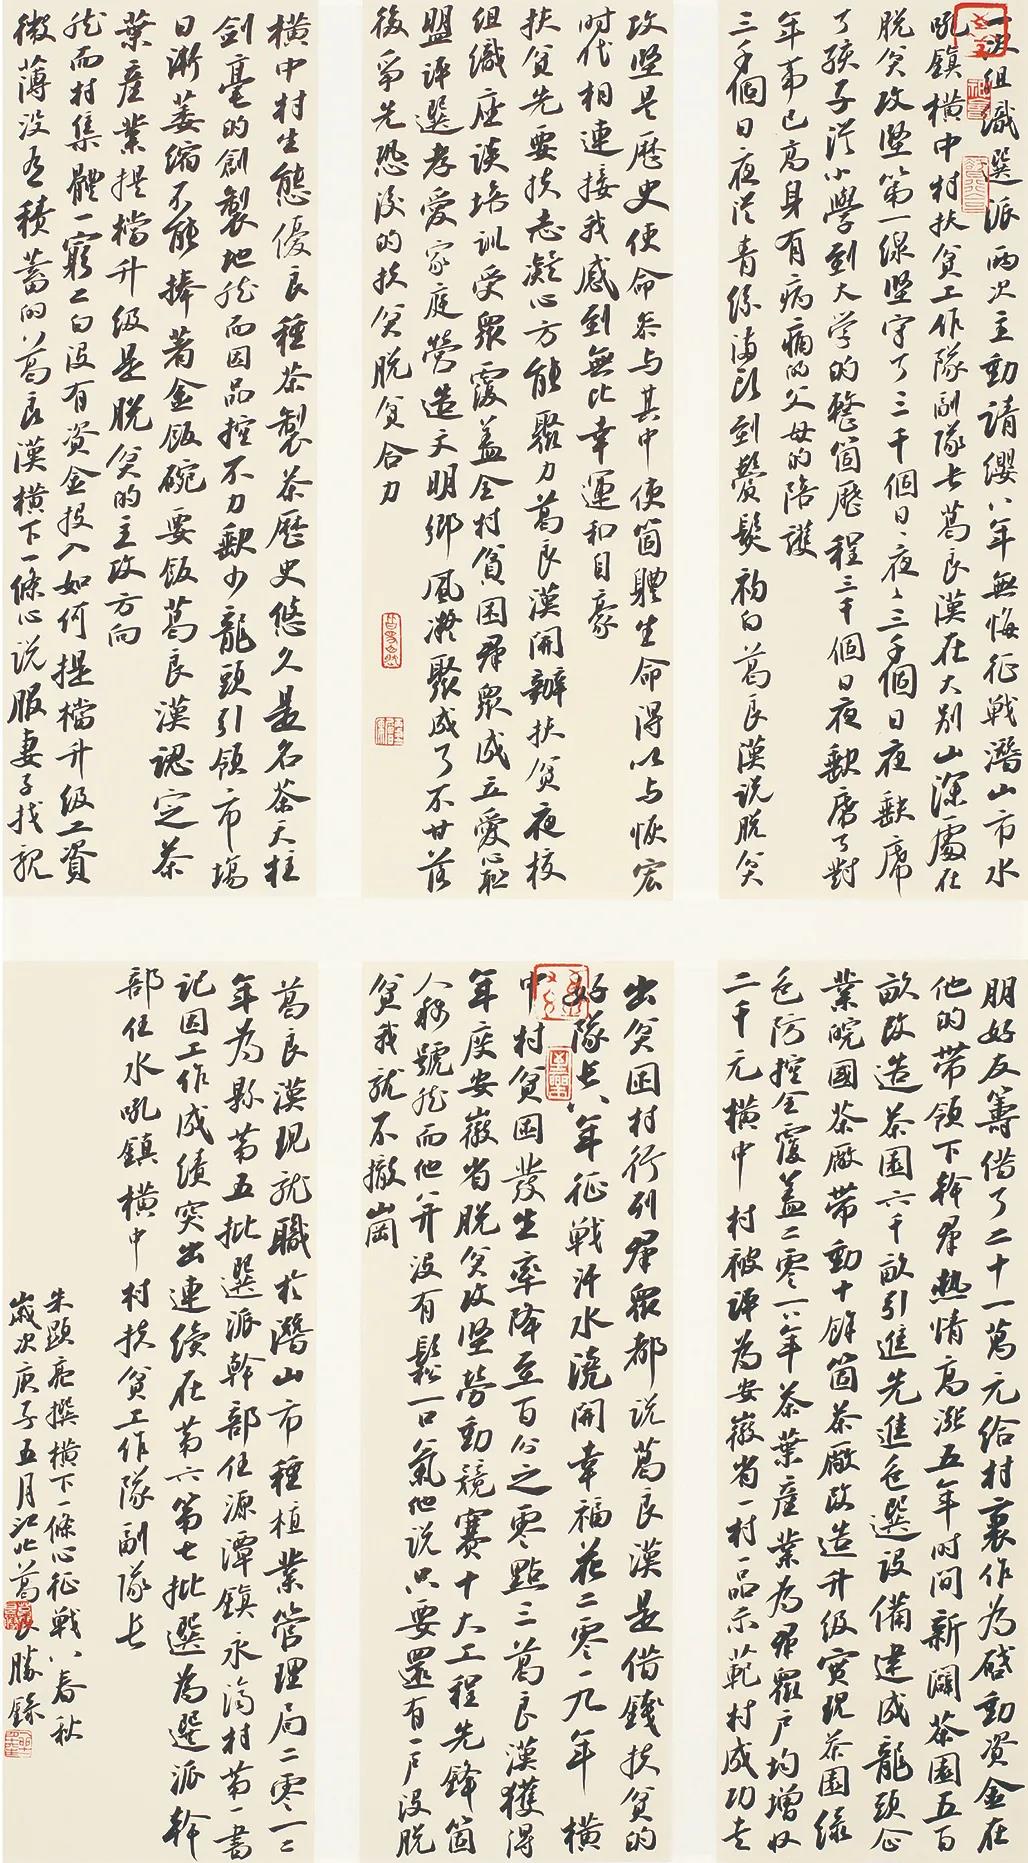 一次組織選派兩次主動請纓八年無悔征戰潛山市水
吼鎮橫中村扶貧工作隊副隊長葛良漢在大別山深處在
脫貧攻堅第一線堅守了三千個日日夜夜三千個日夜缺席
了孩子從小學到大學的整箇歷程三千個日夜缺席了對
年事已高身有病痛的父母的陪護
三千個日夜從青絲滿頭到鬢髮初白葛良漢說脫貧
攻堅是歷史使命參与其中使箇體生命得以与恢宏
时代相連接我感到無比幸運和自豪
扶貧先要扶志凝心方能聚力葛良漢開辦扶貧夜校
組織座談培訓受眾覆蓋全村貧困群眾成立愛心
盟評選孝愛家庭營造文明鄉風凝聚成了不甘落
後爭先恐後的扶貧脫貧合力
橫中村生態優良種茶製茶歷史悠久是名茶天柱
劍毫的創製地然而因品控不力缺少龍頭引領市場
日漸萎縮不能捧著金飯碗要飯葛良漢認定茶
葉產業提檔升級是脫貧的主攻方向
然而村集體一窮二白沒有資金投入如何提檔升級工資
微薄沒有積蓄的葛良漢橫下一條心說服妻子找親
朋好友籌借了二十一萬元給村裏作為啟動資金在
他的带領下幹群熱情高漲五年时间新闢茶園五百
畝改造茶園六千畝引進先進色選設備建成龍頭企
業皖國茶廠帶動十餘箇茶廠改造升级實現茶園綠
色防控全覆蓋二零一八年茶葉產業為群眾户均增收
二千元橫中村被評為安徽省一村一品示範村成功走
出貧困村行列群眾都說葛良漢是借錢扶貧的
好隊長八年征戰汗水澆開幸福花二零一九年橫
中村貧困發生率降至百分之零點三葛良漢獲得
年度安徽省脫貧攻堅勞動競賽十大工程先鋒箇
人稱號然而他并沒有鬆一口氣他說只要還有一户沒脫
貧我就不撤崗
葛良漢現就職於潛山市種植業管理局二零一二
年為縣第五批選派幹部任源潭鎮永濟村第一書
記因工作成績突出連續在第六第七批選為選派幹
部任水吼鎮橫中村扶貧工作隊副隊长
朱顯亮撰橫下一條心征戰八春秋
歲次庚子五月江北葛勝錄